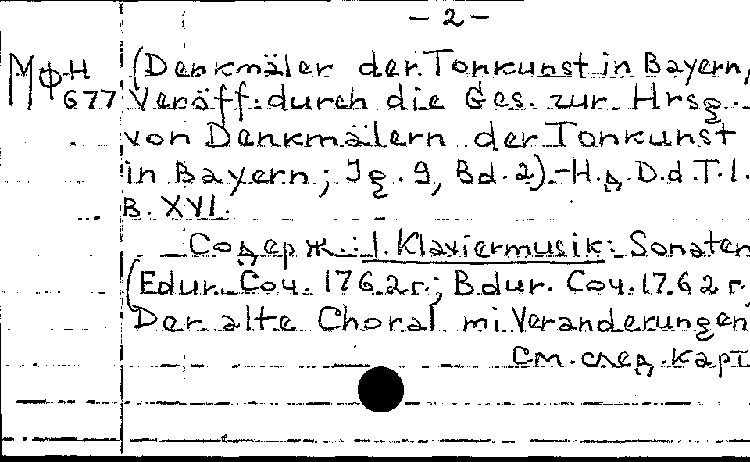 - 2 -
МФН (Denkmäler der Tonkunst in Bayern,
677 Veröff. durch die Ges. zur Hrsg.
von Denkmälern der Tonkunst
in Bayern; Jg. 9, Bd. 2).-Н.д.D.d.T.i.
B. XVI.
Содерж.: I. Klaviermusik: Sonaten
(Edur. Соч. 1762г.; Bdur. Соч. 1762г.
Der alte Choral mi Veranderungen
См. след. карт